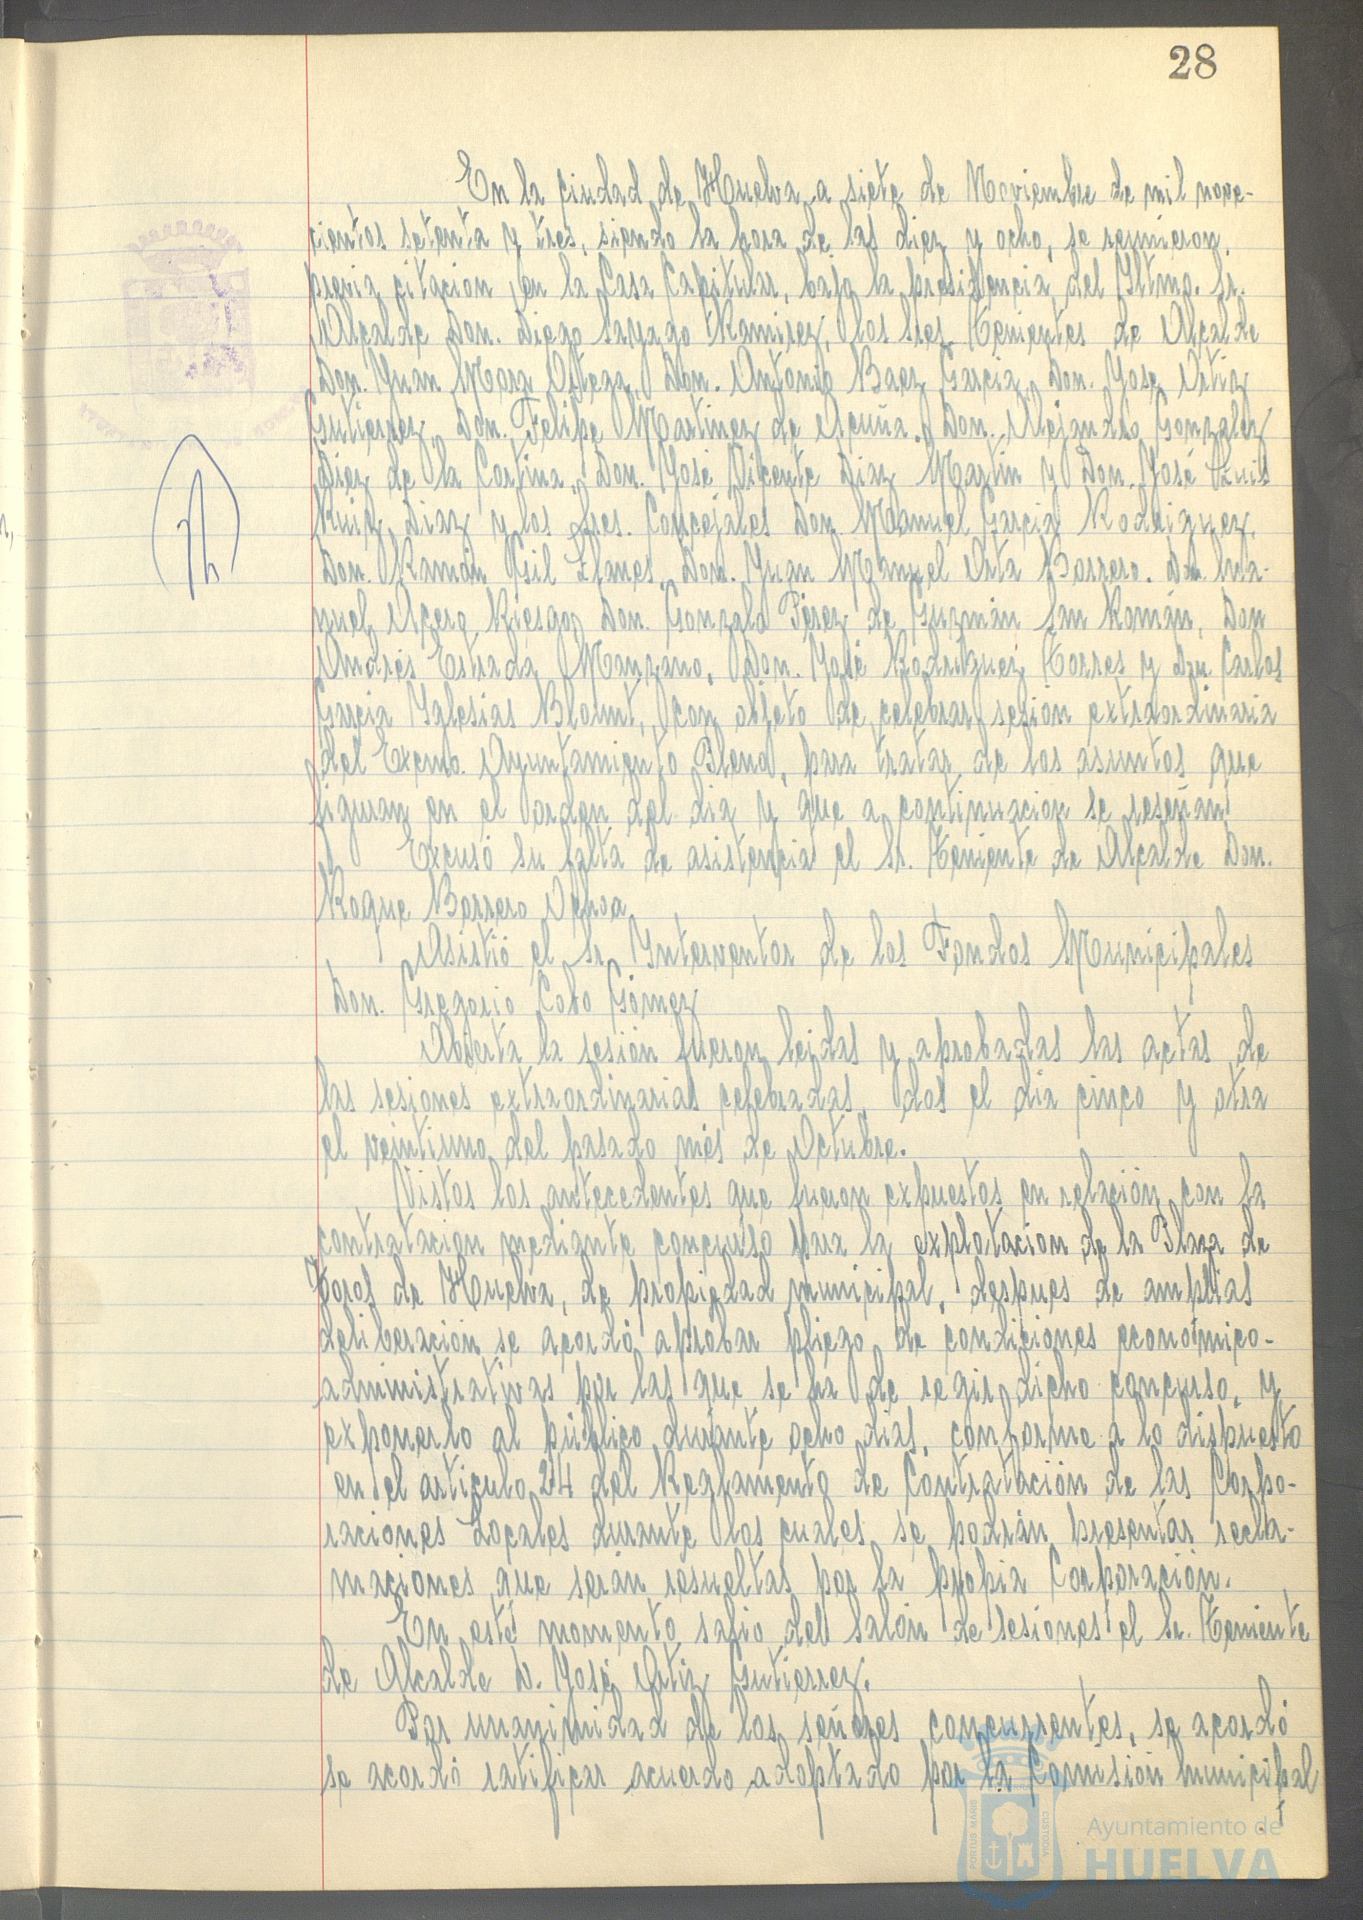 28
En la ciudad de Huelva a siete de Noviembre de mil nove-
cientos setenta y tres, siendo la hora de las diez y ocho, se reunieron,
previa citacion, en la Casa Capitular, bajo la presidencia del Yltmo. Sr.
Alcalde Don. Diego Sayago Ramirez, los Sres. Tenientes de Alcalde
Don. Juan Mora Ortega, Don. Antonio Baez Garcia, Don. Jose Ortiz
Gutierrez, Don. Felipe Martinez de Acuña, Don. Alejandro Gonzalez
Diez de la Cortina, Don. José Vicente Diaz Martin y Don. José Luis
Ruiz Diaz y los Sres. Concejales Don. Manuel Garcia Rodriguez,
Don. Ramón Gil Llanes, Don. Juan Manuel Orta Borrero, Don. Ma-
nuel Acero Riesgo, Don. Gonzalo Pérez de Guzmán San Román, Don
Andrés Estrada Manzano, Don. José Rodriguez Torres y Don. Carlos
Garcia Yglesias Blount, con objeto de celebrar sesión extraordinaria
del Excmo. Ayuntamiento Pleno, para tratar de los asuntos que
figuran en el orden del dia y que a continuación se reseñan:
Excusó su falta de asistencia el Sr. Teniente de Alcalde Don.
Roque Borrero Ochoa.
Asistió el Sr. Ynterventor de los Fondos Municipales
Don. Gregorio Cobo Gómez
Abierta la sesión fueron leidas y aprobadas las actas de
las sesiones extraordinarias celebradas, dos el dia cinco y otra
el veintiuno del pasado més de Octubre.
Vistos los antecedentes que fueron expuestos en relación con la
contratación mediante concurso para la explotacion de la Plaza de
Toros de Huelva, de propiedad municipal, despues de amplias
deliberación se acordó aprobar pliego de condiciones económico-
administrativas por las que se ha de regir dicho concurso, y
exponerlo al público durante ocho dias, conforme a lo dispuesto
en el articulo 24 del Reglamento de Contratación de las Corpo-
raciones Locales durante los cuales se podrán presentar recla-
maciones que serán resueltas por la propia Corporación.
En este momento salio del Salón de sesiones el Sr. Teniente
de Alcalde D. José Ortiz Gutierrez.
Por unanimidad de los señores concurrentes, se acordó
se acordó ratificar acuerdo adoptado por la Comisión municipal
PORTUS MARIS CUSTODIA
Ayuntamiento de
HUELVA